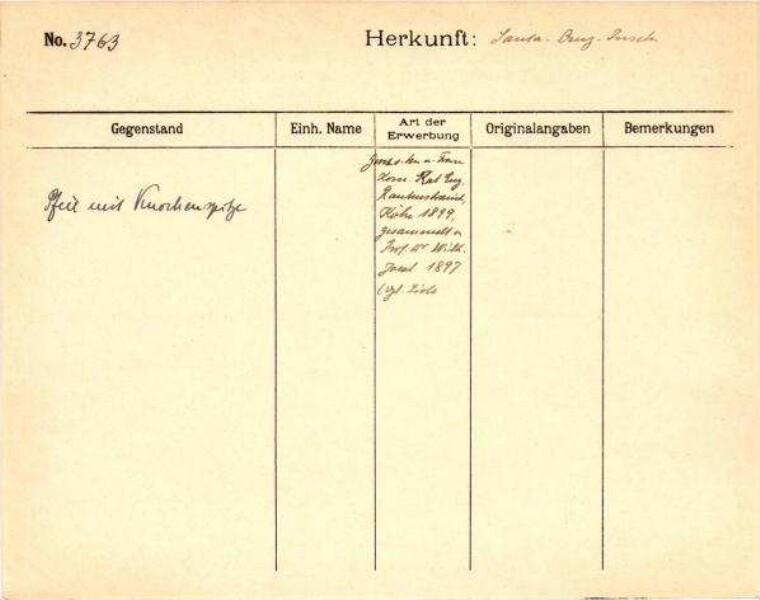 No. 3763
Herkunft: Santa-Cruz-Inseln
Gegenstand
Einh. Name
Art der
Erwerbung
Originalangaben
Bemerkungen
Pfeil mit Knochenspitze
Frau
Kom. Rat Eug.
Rautenstrauch,
Köln 1899,
gesammelt v.
Prof. Dr. Wilh.
Joest 1897
(vgl. Liste